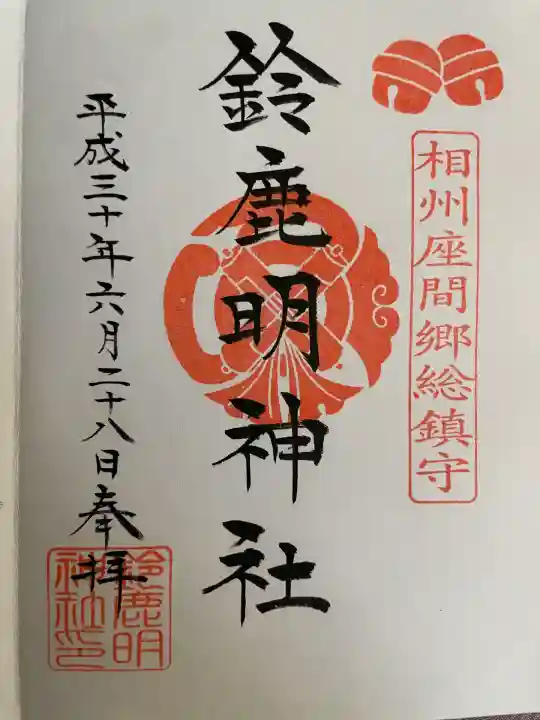 相州座間郷総鎮守
鈴鹿明神社
平成三十年六月二十八日奉拝
鈴鹿明
神社印